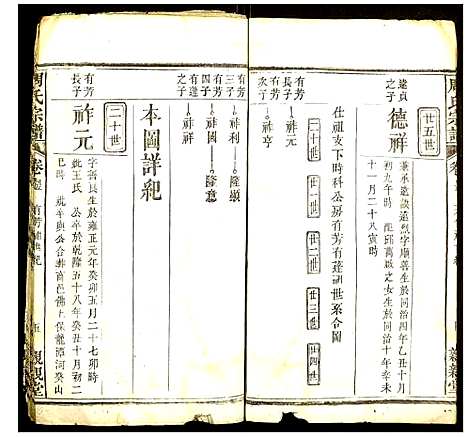 周氏宗譜
廿五世
遠貞之子
德祥
兼承遠談遠烈字順善生於同治四年乙丑十月
初九午時 配邱萬啟之女生於同治十年
十一月二十八寅時
仕祖支下時科公房有芳有蓬訓世系合圖
二十世
廿一世
廿二世
廿三世
廿四世
有芳次子
祚亨
有芳三子
祚利
隆顯
有芳四子
祚國
隆意
有蓬之子
祚祥
本圖詳紀
二十世
有芳長子
祚元
字善長生於雍正元年癸卯五月二十七卯時
歿於乾隆五十八年癸丑十月初二
配王氏
巳時 與公合葬南邑佛上保龍潭河癸山
周氏宗譜
卷
五
親親堂
親親堂